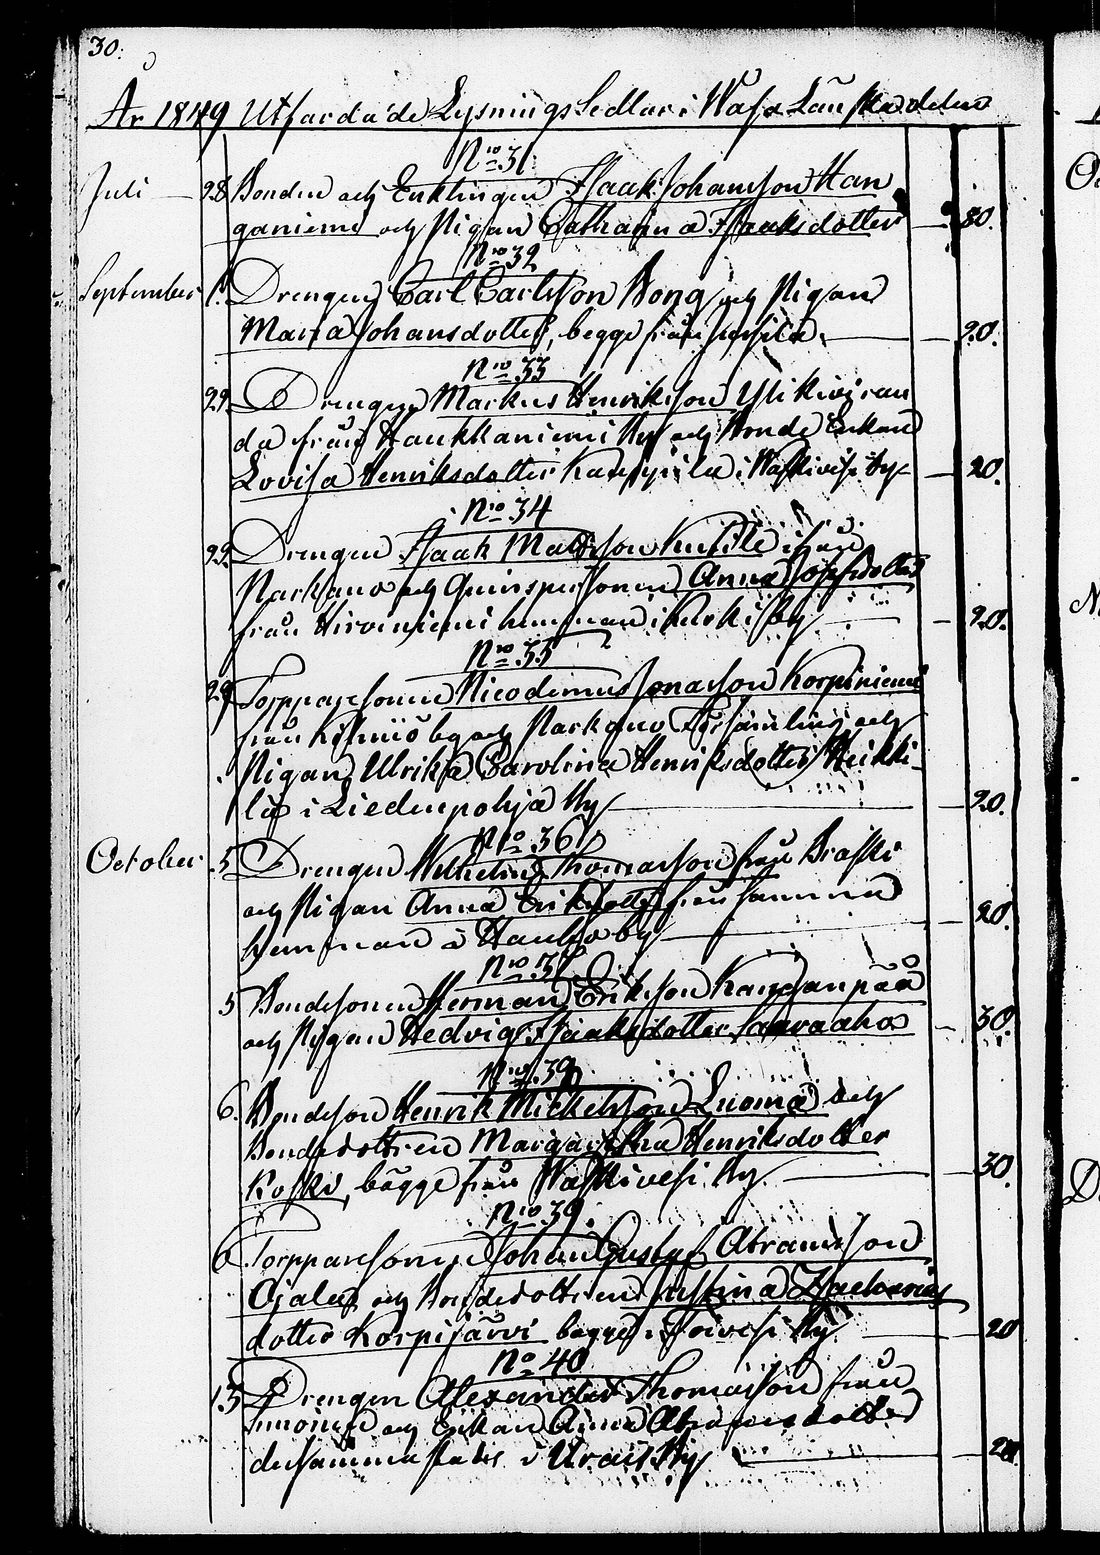 30.
År 1849 Utfärdade Lysnings Sedlar i Wasa Län
No 31
Juli 28 Bonden och Enklingen Isaak Johansson Han
ganiemi och Pigan Catharina Isaaksdotter 80.
No 32
September 1. Drengen Carl Carlsson Bong och Pigan
Maria Johansdotter, begge från 20.
No 33
22. Drengen Markus Henriksson Ylikiviran
da från Haukkaniemi By och Bonde Enkan
Lovisa Henriksdotter i Waskivesi by 20.
No 34
22. Drengen Isaak Mattsson ifrån
Parkano och Qvinspersonen Anna Josefsdotter
från Hirviniemi hemman i Kurki By 20.
No 35
29 Torpparesonen Nicodemus Jonasson Korpiniemi
från Kihniö by och Parkano Församling och
Pigan Ulrika Carolina Henriksdotter Heikki-
lä i Liedenpohja By 20.
No 36
October 5 Drengen Wilhelm Thomasson från Braski
och Pigan Anna Eriksdotter från samma
hemman i by 20.
No 37
5 Bondesonen Herman Eriksson Kanganpää
och Pigan Hedvig Isaaksdotter Saaraaho 30.
No 39
6. Bondeson Henrik Mickelsson Luoma och
Bondedottren Margaretha Henriksdotter
Koski, bägge från Waskivesi By. 30.
No 39.
6 Torpparesonen Johan Gustaf Abramsson
Ojala och Bondedottren Justina Zacharias
dotter Korpijärvi begge i By 20
No 40
13 Drengen Alexander Thomasson från
och Enkan Anna Abramsdotter
dersammastädes i By 20.